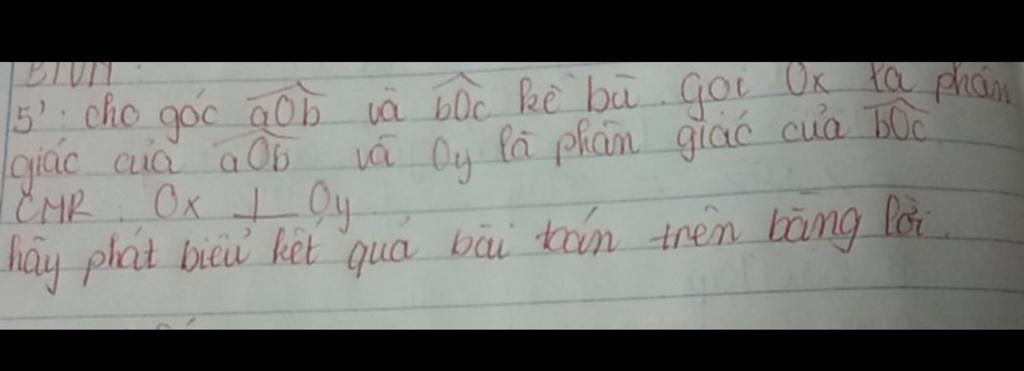 BTVN:
5': cho góc aOb và bOc kề bù. gọi Ox là phân
giác của aOb và Oy là phân giác của bOc
CMR: Ox ⊥ Oy
hãy phát biểu kết quả bài toán trên bằng lời.